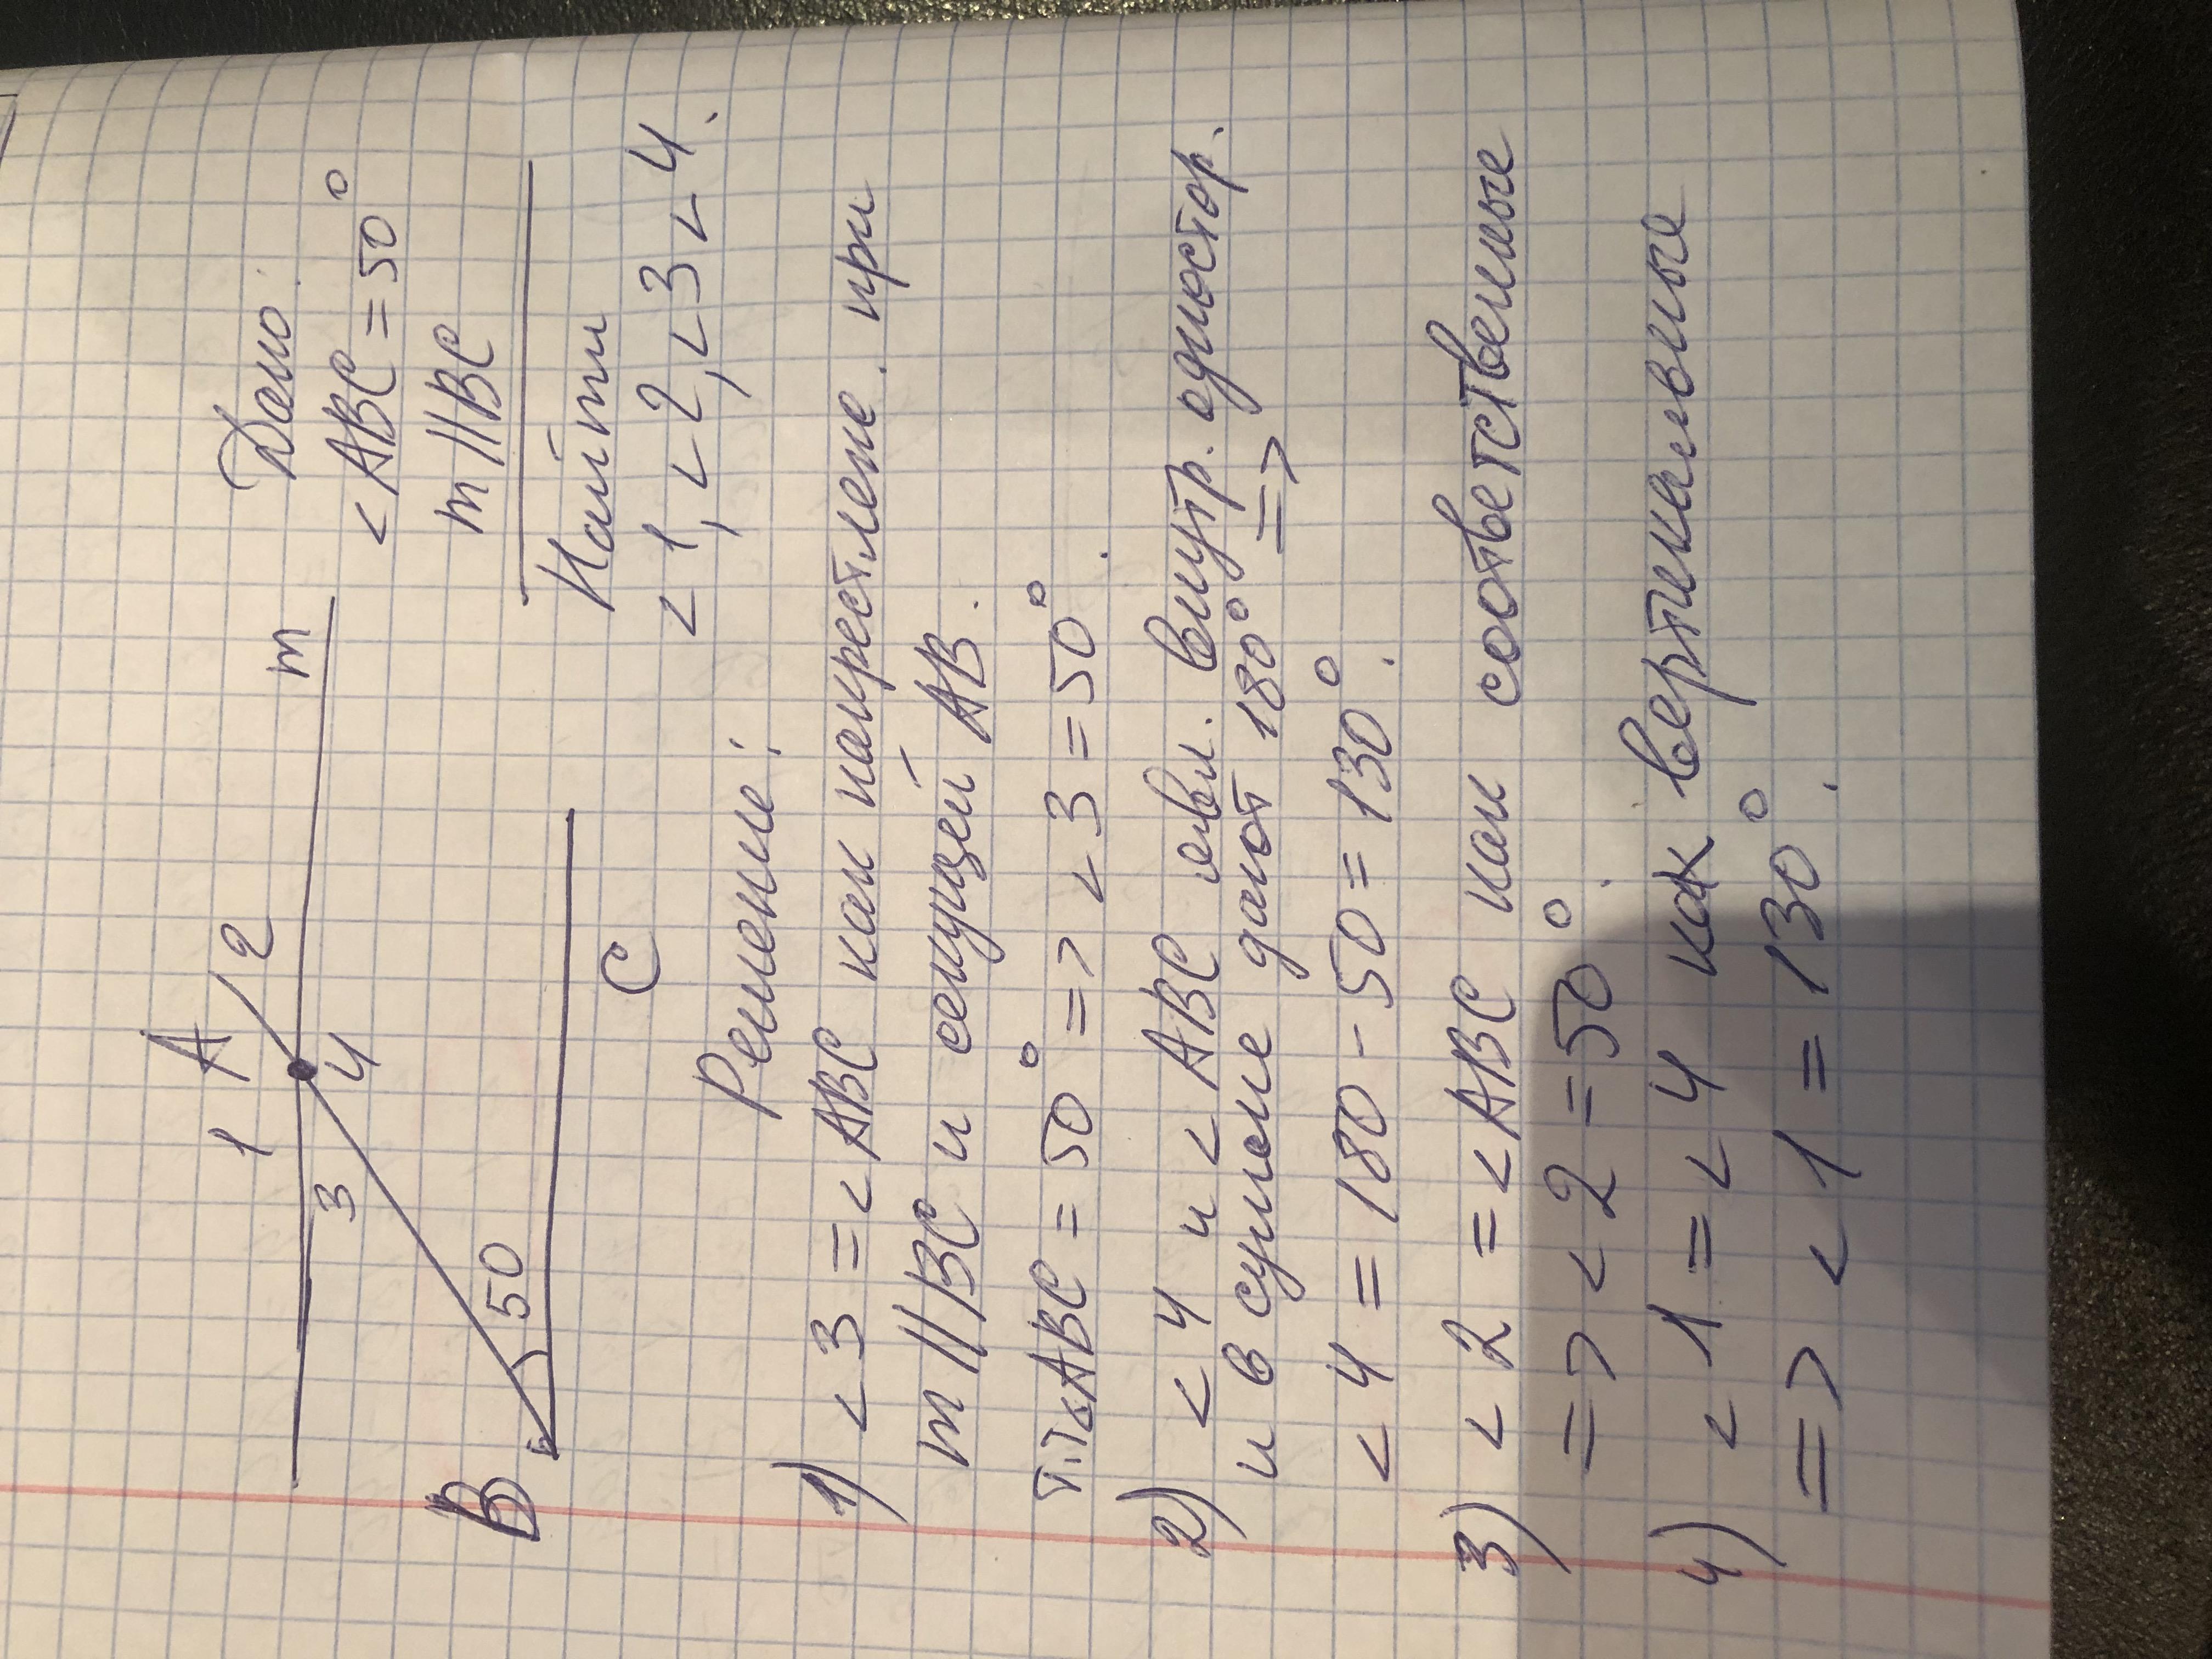 1 A 2
m
3 4
B 50
C
Дано:
<ABC = 50°
m || BC
Найти
<1, <2, <3 <4.
Решение:
1) <3 = <ABC как накрестлеж. при
m || BC и секущей AB.
т.к <ABC = 50° => <3 = 50°.
2) <4 и <ABC явл. внутр. одностор.
и в сумме дают 180° =>
<4 = 180 - 50 = 130°.
3) <2 = <ABC как соответственные
=> <2 = 50°.
4) <1 = <4 как вертикальные
=> <1 = 130°.